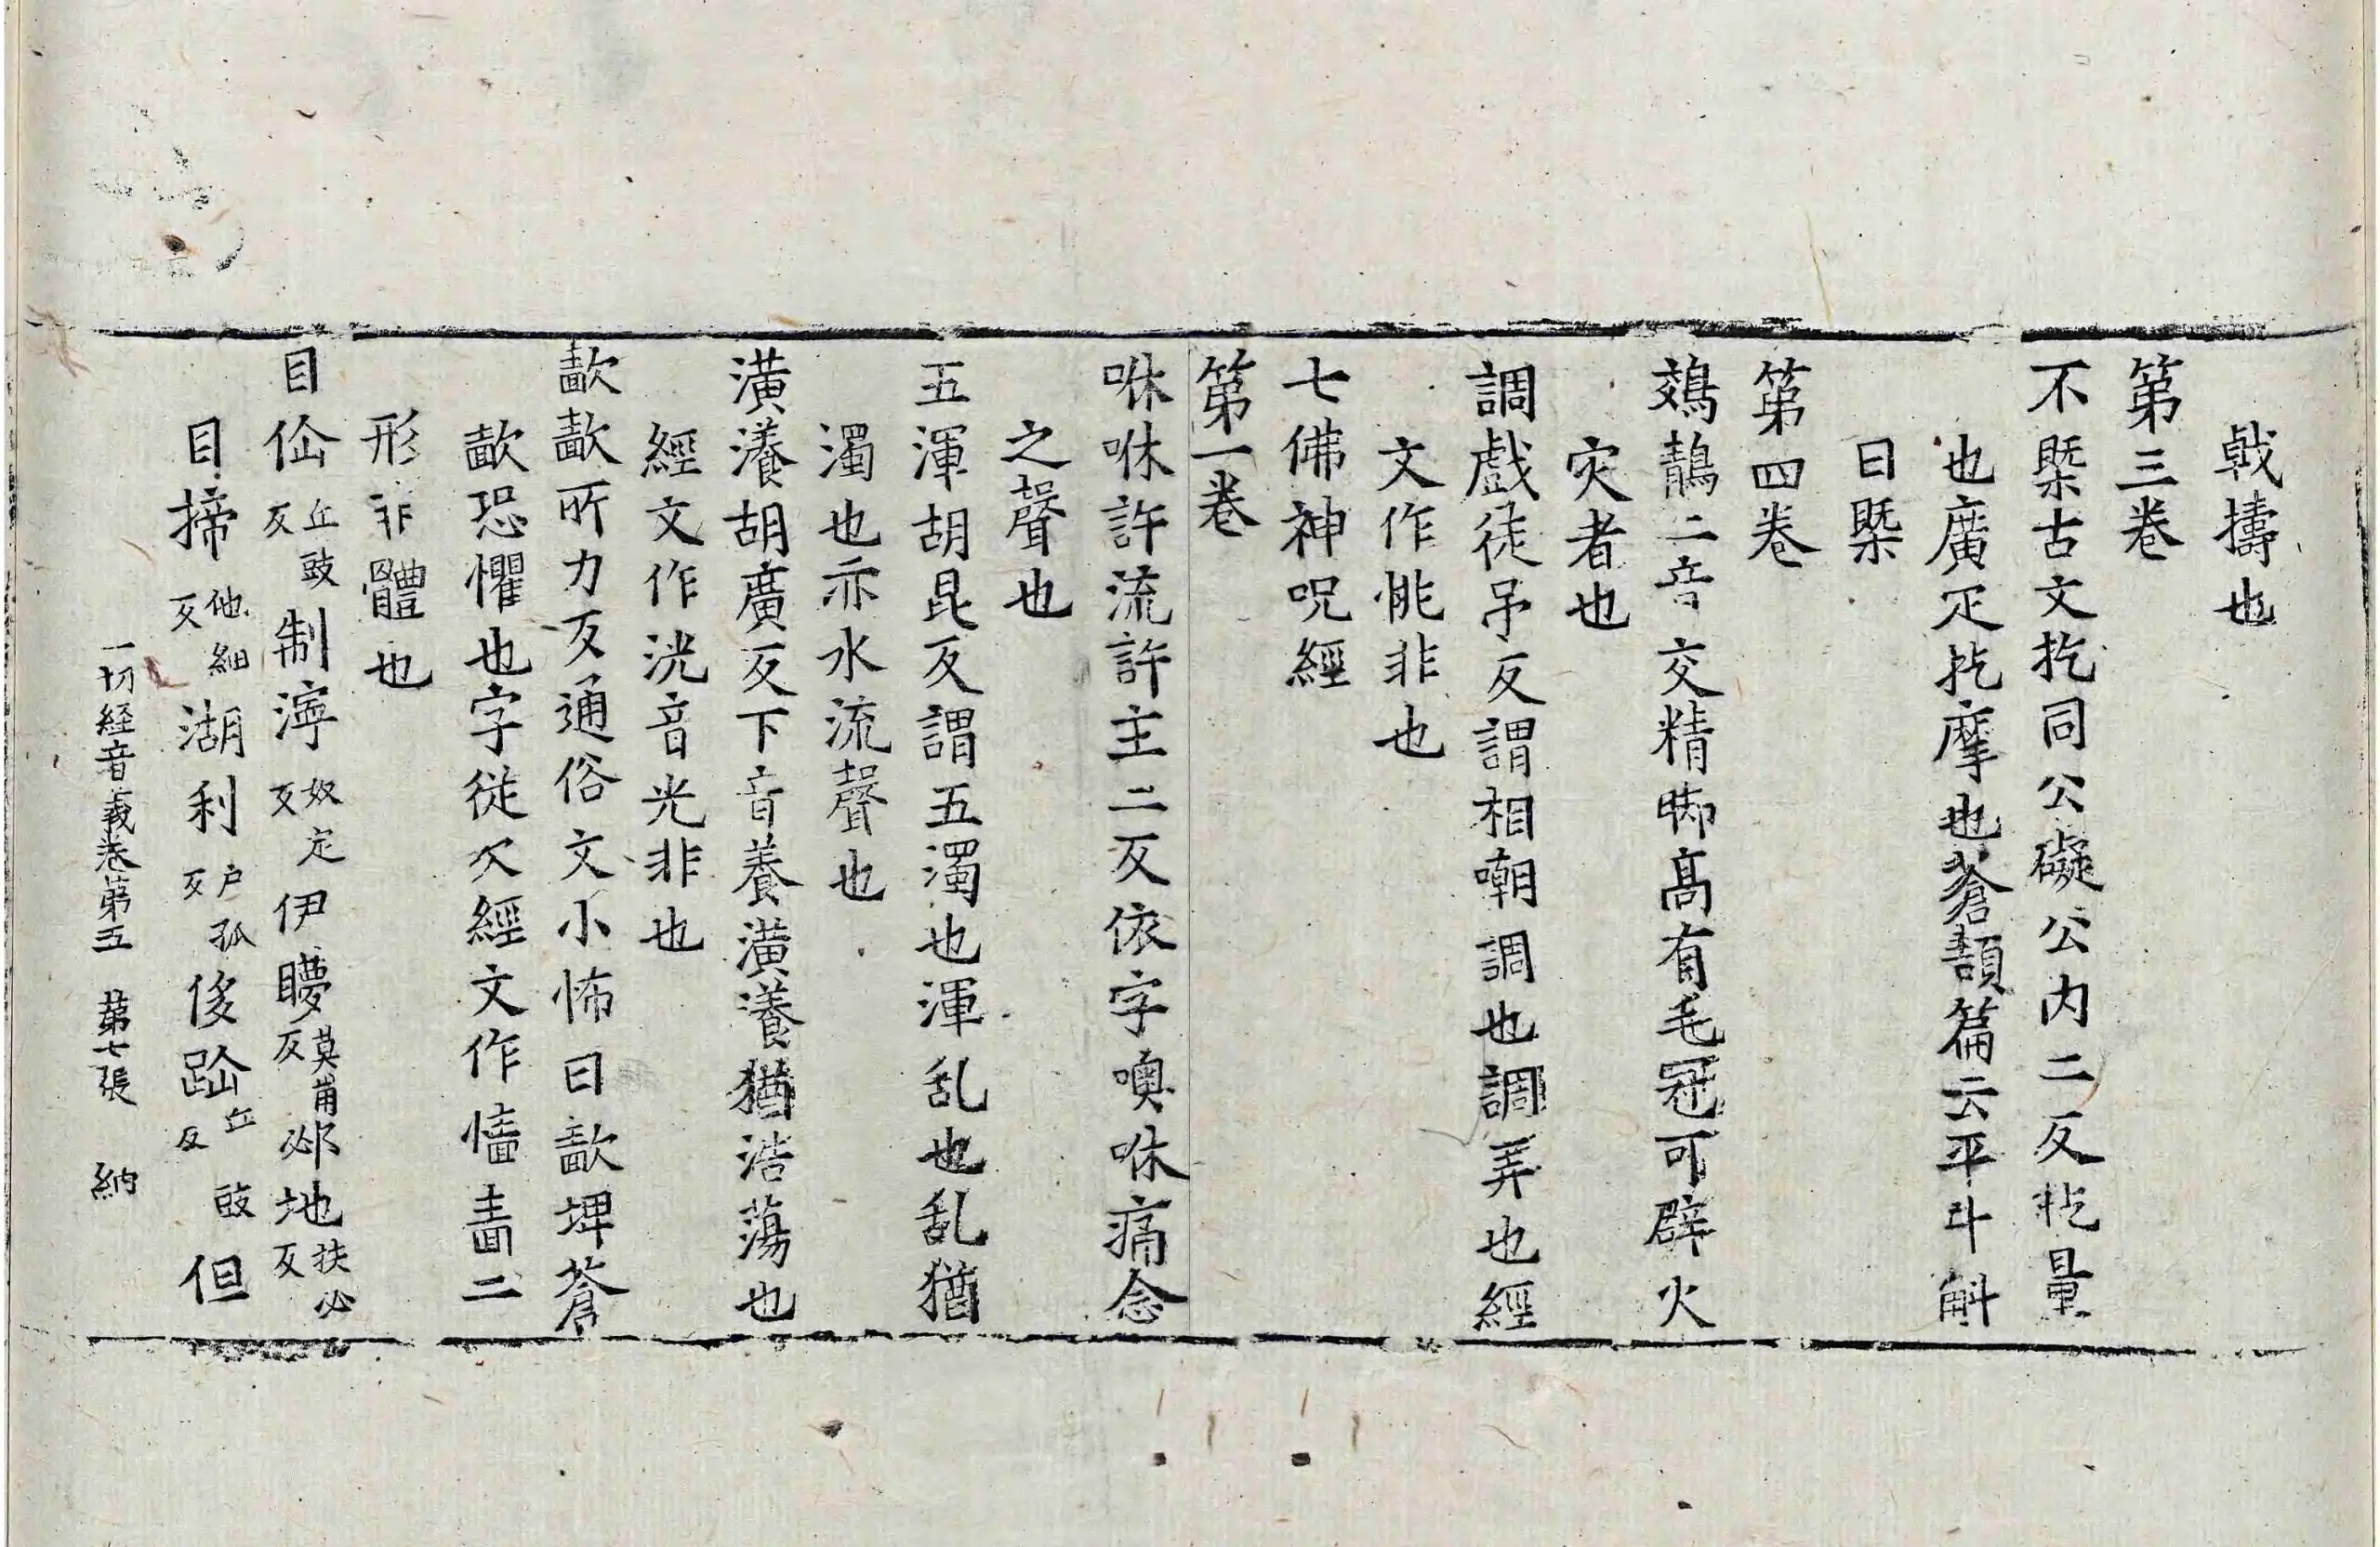 戟擣也
第三卷
不槩古文扢同公礙公内二反扢量
也廣疋扢摩也蒼頡篇云平斗斛
曰槩
第四卷
鵁鶄二音交精脚高有毛冠可辟火
灾者也
調戲徒吊反謂相嘲調也調弄也經
文作恌非也
七佛神呪經
第一卷
咻咻許流許主二反依字噢咻痛念
之聲也
五渾胡昆反謂五濁也渾乱也乱猶
濁也亦水流聲也
潢瀁胡廣反下音養潢瀁猶浩蕩也
經文作洸音光非也
歗歗所力反通俗文小怖曰歗埤蒼
歗恐懼也字從欠經文作懎啬二
形非體也
目㐽丘豉反制濘奴定反伊矇莫莆反邲地扶必反
目揥他細反湖利户孤反侈䟗丘豉反但
一切経音義卷第五 第七張 納